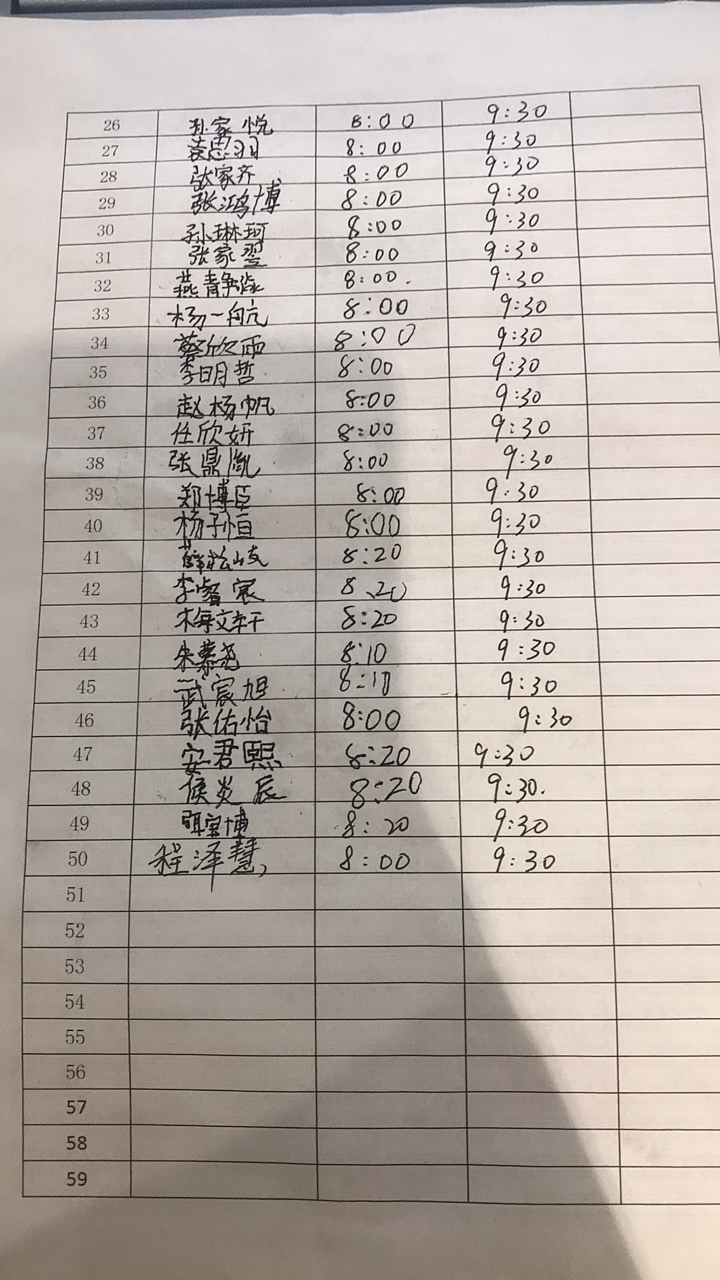 26 孙家悦 8:00 9:30
27 袁思羽 8:00 9:30
28 张家齐 8:00 9:30
29 张鸿博 8:00 9:30
30 孙琳珂 8:00 9:30
31 张家翌 8:00 9:30
32 燕静 8:00. 9:30
33 杨一航 8:00 9:30
34 蔡欣雨 8:00 9:30
35 李明哲 8:00 9:30
36 赵杨帆 8:00 9:30
37 任欣妍 8:00 9:30
38 张鼎胤 8:00 9:30
39 郑博臣 8:00 9:30
40 杨子恒 8:00 9:30
41 薛松岐 8:20 9:30
42 李睿宸 8:20 9:30
43 梅文轩 8:20 9:30
44 朱慕尧 8:10 9:30
45 武宸旭 8:10 9:30
46 张佑怡 8:00 9:30
47 安君熙 8:20 9:30
48 侯炎辰 8:20 9:30.
49 博 8:20 9:30
50 程泽慧 8:00 9:30
51
52
53
54
55
56
57
58
59